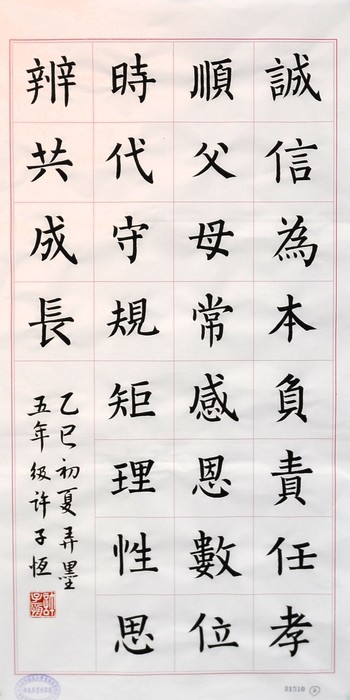 誠信為本負責任孝
順父母常感恩數位
時代守規矩理性思
辨共成長
乙巳初夏弄墨
五年級许子恆
31510